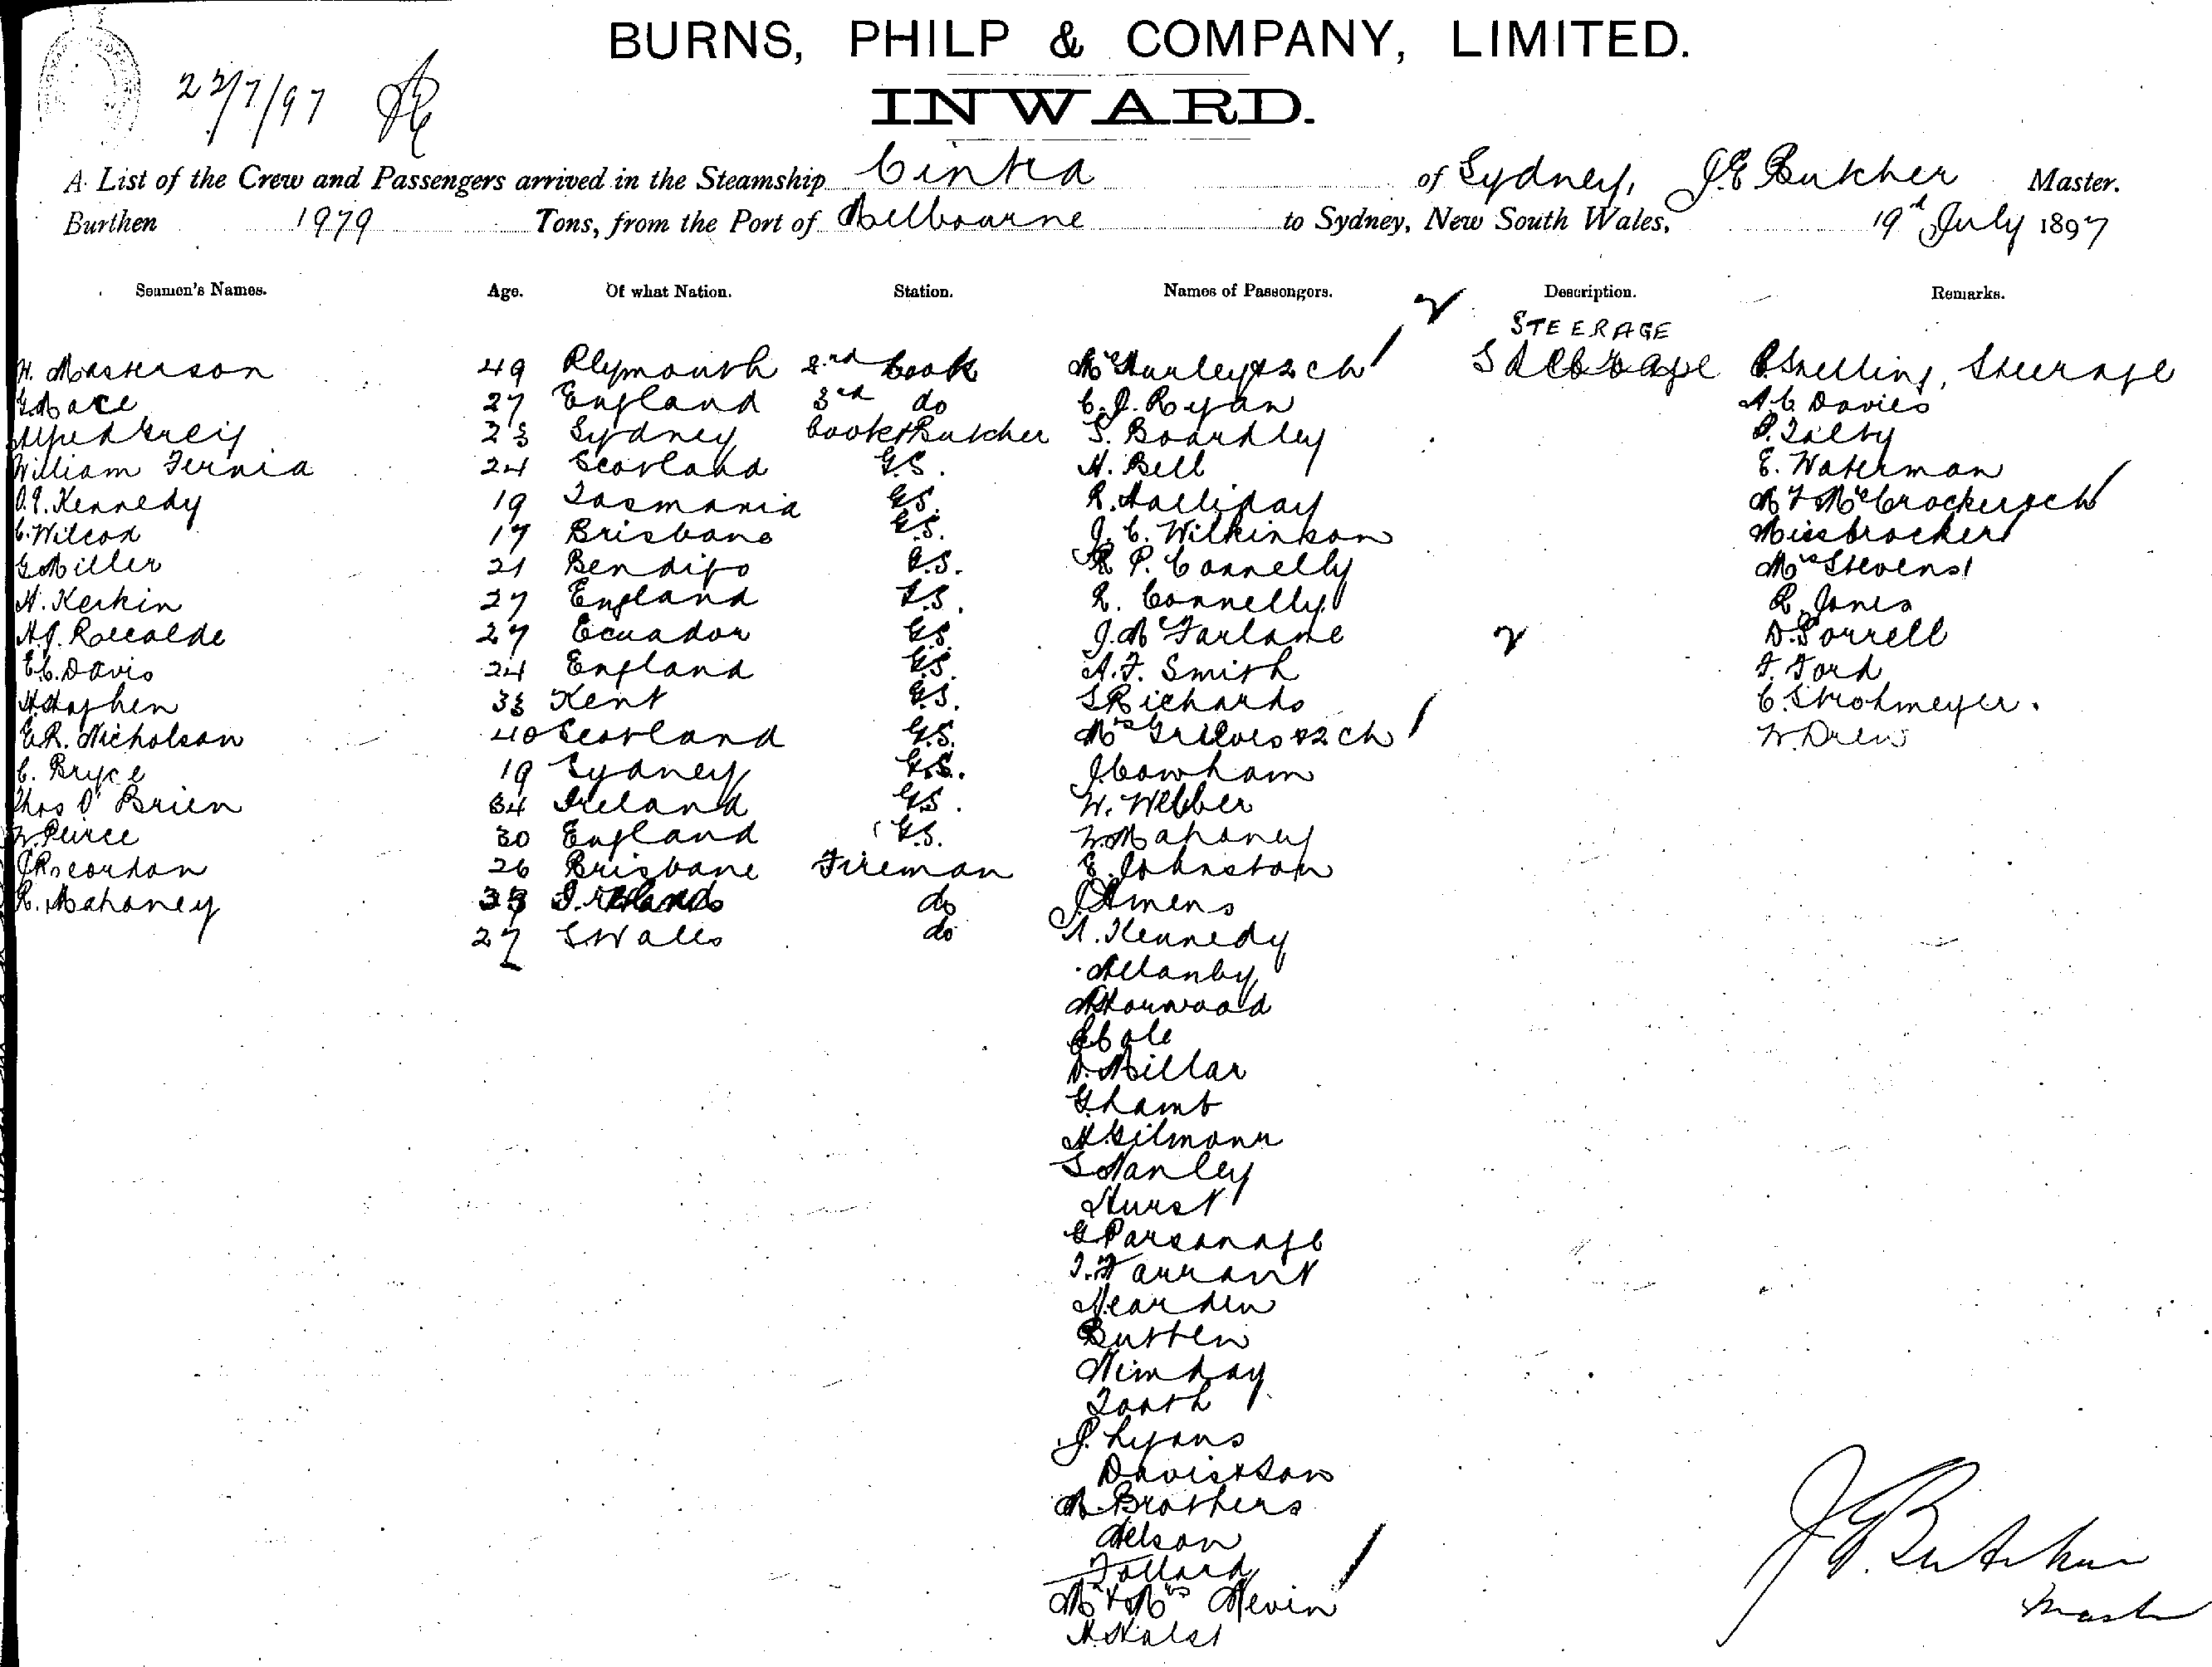 BURNS, PHILP & COMPANY, LIMITED.
22/7/97
INWARD.
A List of the Crew and Passengers arrived in the Steamship Cintra of Sydney, J.E Butcher Master.
Burthen 1979 Tons, from the Port of Melbourne to Sydney, New South Wales, 19th July 1897
Seamen's Names. Age. Of what Nation. Station. Names of Passengers. Description. Remarks.
STEERAGE
H. Masterson 49 Plymouth 2nd Cook Mrs Hurley & 2 ch Steerage Snelling, Steerage
G Mace 27 England 3rd do C.J. Ryan A.C. Davies
Alfred Greig 23 Sydney Cook & Butcher S. Boardley P. Tilby
William Fernia 24 Scotland G.S. H. Bell E. Waterman
Kennedy 19 Tasmania G.S. R. Halliday Mr & Mrs Crocker & ch
C. Wilcox 17 Brisbane G.S. J. C. Wilkinson Miss Crocker
G Miller 21 Bendigo G.S. P. Connelly Mrs Stevens
H. Kerkin 27 England G.S. R. Connelly R. Jones
H.J. Recalde 27 Ecuador G.S. J. McFarlane D. Sorrell
E.C. Davis 24 England G.S. A.F. Smith F. Ford
33 Kent G.S. S Richards C. Strohmeyer.
E.R. Nicholson 40 Scotland G.S. Mrs Greeves & 2 ch W. Drew
C. Bryce 19 Sydney G.S. J Cowham
Thos O'Brien 34 Ireland G.S. W. Webber
W. Peirce 30 England G.S. W. Mahoney
J Reordan 26 Brisbane Fireman E. Johnston
R. Mahoney Ireland do J Amens
27 S Wales do A. Kennedy
Allanby
Horwood
Cole
D. Millar
G. Lamb
H Gilmour
S Hanley
Hurst
G Parsonage
T. Farrant
Nearden
Button
Tooth
J. Lyons
Davis & Son
M Brothers
Nelson
Follard
Mr & Mrs Nevin
J.E. Butcher
Master